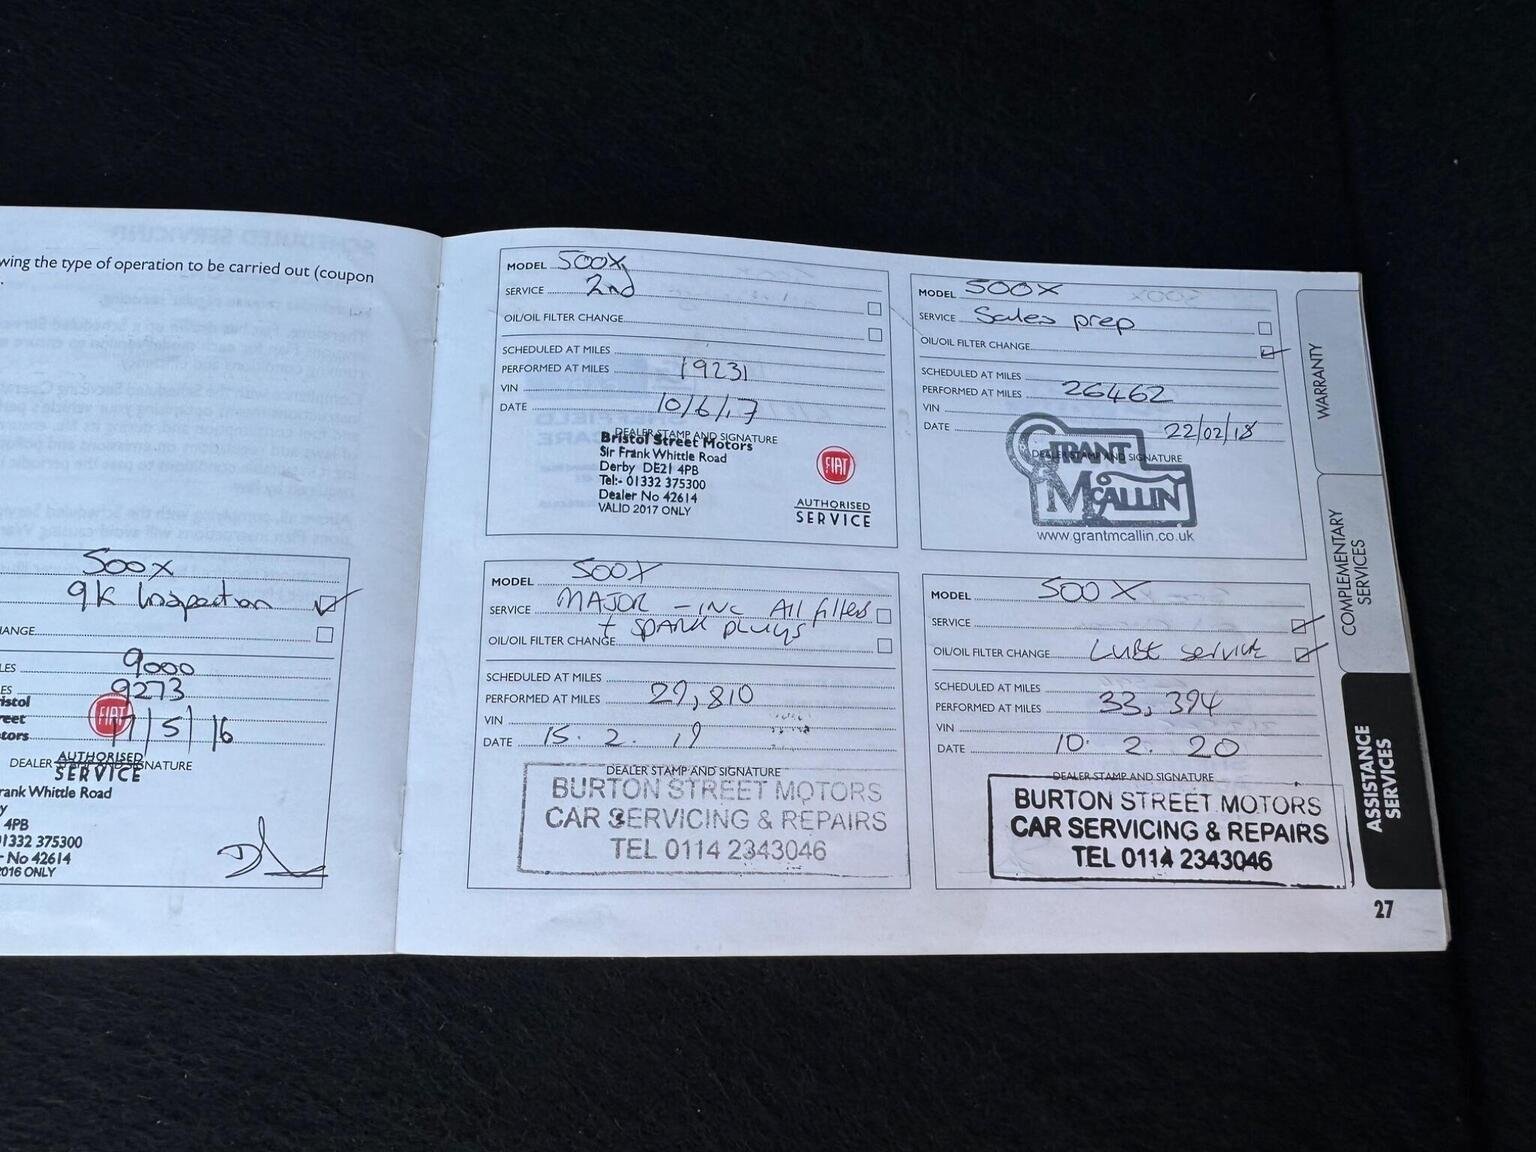 wing the type of operation to be carried out (coupon
500X
9k Inspection
HANGE
LES 9000
ES 9273
istol
reet
otors
FIAT
17/5/16
AUTHORISED
SERVICE
DEALER STAMP AND SIGNATURE
rank Whittle Road
y
4PB
01332 375300
r No 42614
2016 ONLY
MODEL 500X
SERVICE 2nd
OIL/OIL FILTER CHANGE
SCHEDULED AT MILES
PERFORMED AT MILES 19231
VIN
DATE 10/6/17
DEALER STAMP AND SIGNATURE
Bristol Street Motors
Sir Frank Whittle Road
Derby DE21 4PB
Tel:- 01332 375300
Dealer No 42614
VALID 2017 ONLY
FIAT
AUTHORISED
SERVICE
MODEL 500X
SERVICE Sales prep
OIL/OIL FILTER CHANGE
SCHEDULED AT MILES
PERFORMED AT MILES 26462
VIN
DATE 22/02/18
DEALER STAMP AND SIGNATURE
GRANT
MCALLIN
www.grantmcallin.co.uk
MODEL 500X
SERVICE MAJOR - INC All filters
+ SPARK plugs
OIL/OIL FILTER CHANGE
SCHEDULED AT MILES
PERFORMED AT MILES 29,810
VIN
DATE 15. 2. 19
DEALER STAMP AND SIGNATURE
BURTON STREET MOTORS
CAR SERVICING & REPAIRS
TEL 0114 2343046
MODEL 500X
SERVICE
OIL/OIL FILTER CHANGE LUBE service
SCHEDULED AT MILES
PERFORMED AT MILES 33,394
VIN
DATE 10. 2. 20
DEALER STAMP AND SIGNATURE
BURTON STREET MOTORS
CAR SERVICING & REPAIRS
TEL 0114 2343046
WARRANTY
COMPLEMENTARY
SERVICES
ASSISTANCE
SERVICES
27